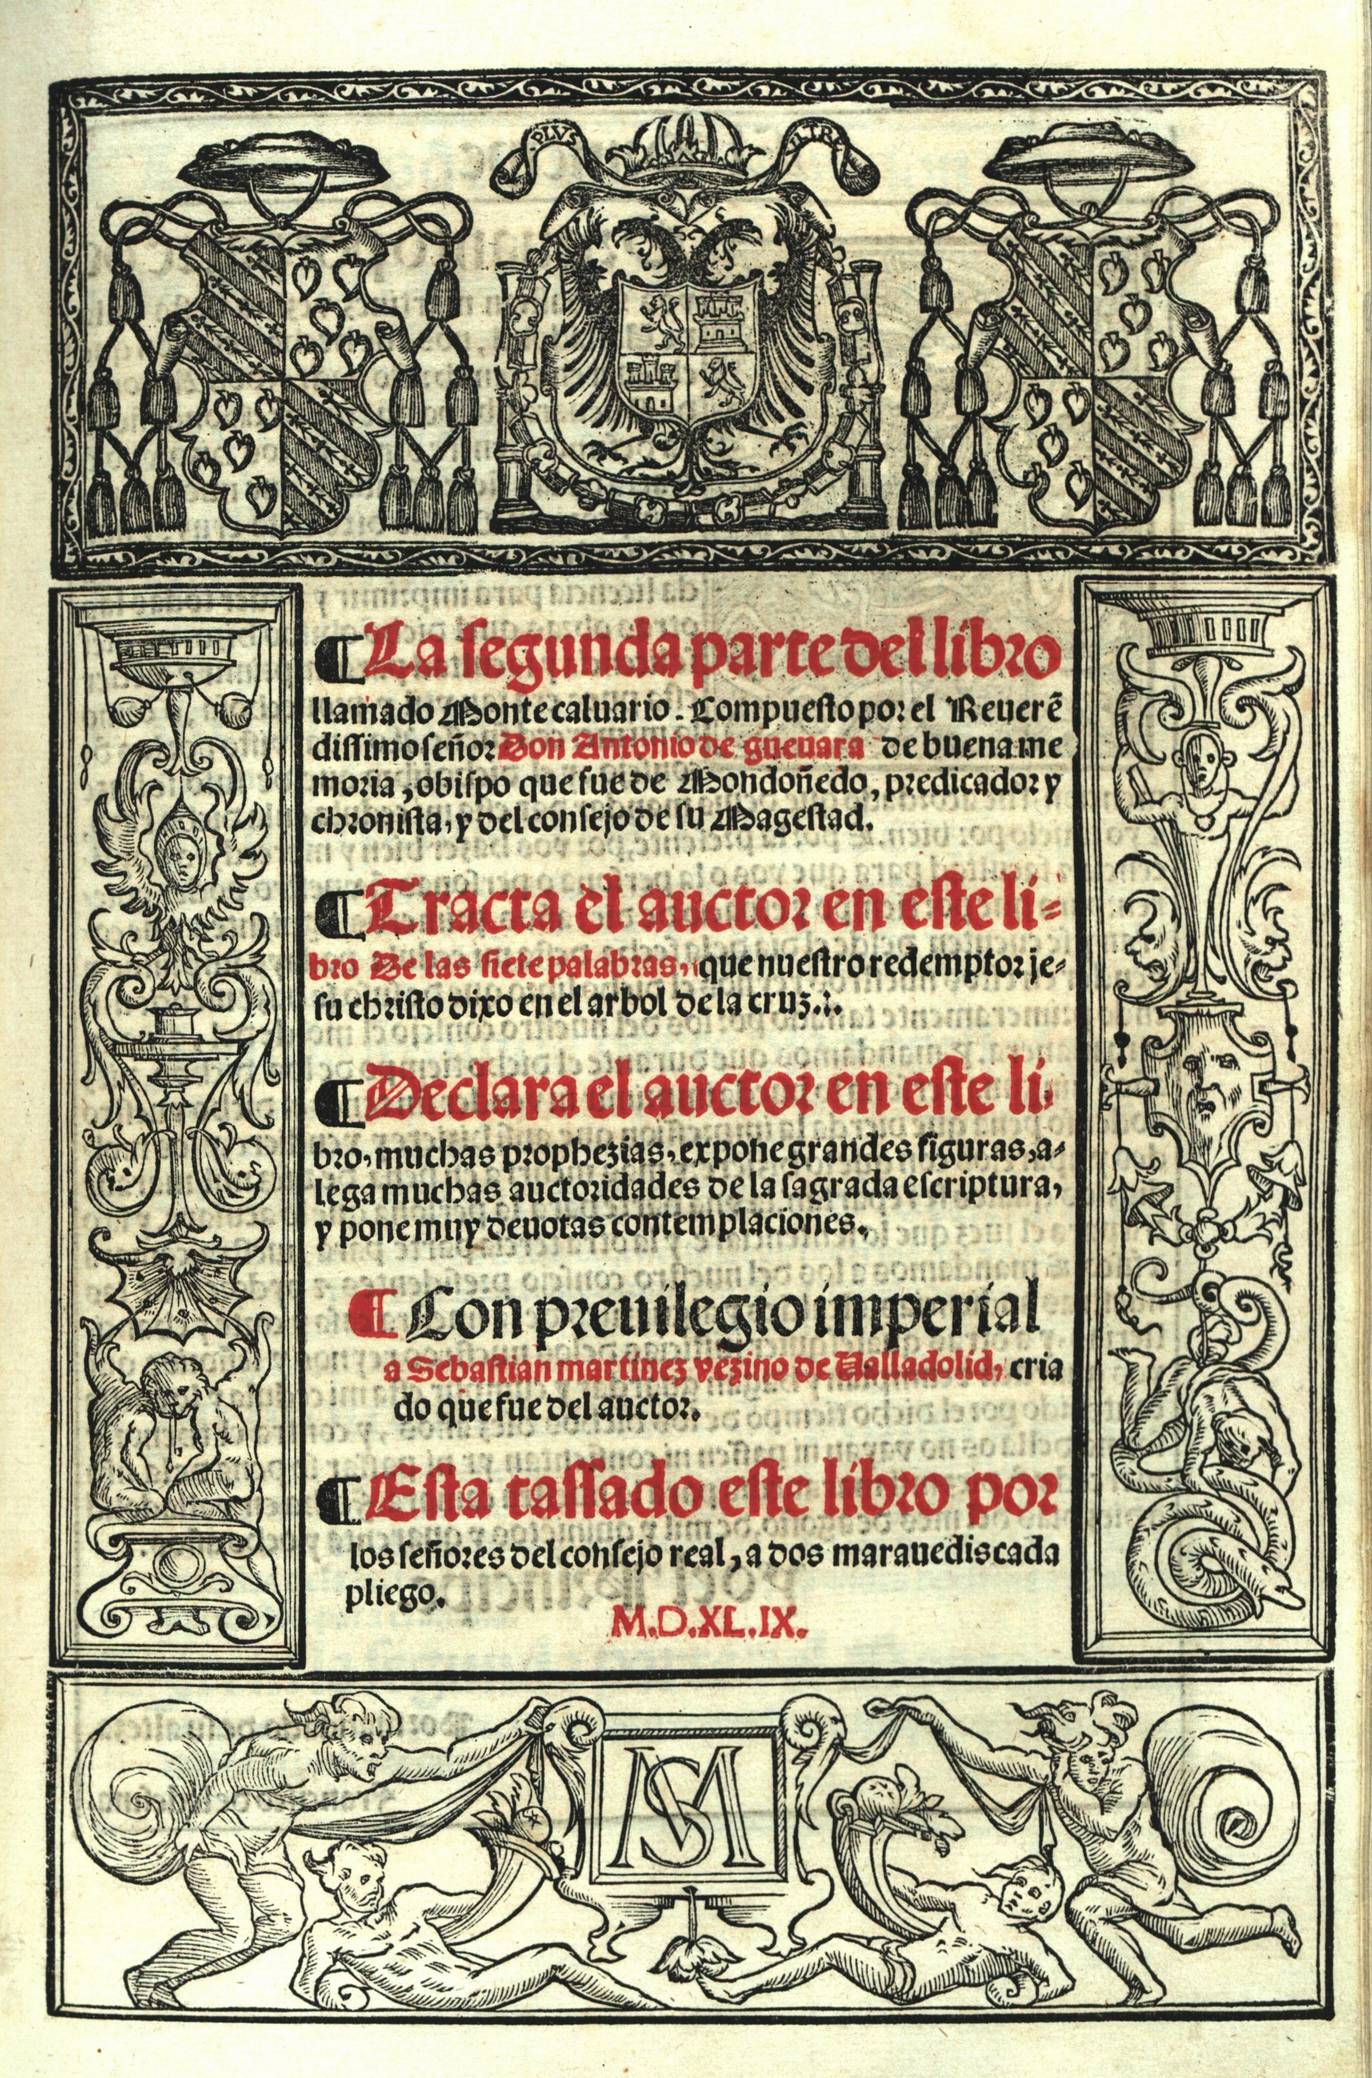 PLVS VLTRE
¶ La segunda parte del libro
llamado Monte caluario. Compuesto por el Reuerẽ
dissimo señor Don Antonio de gueuara de buena me
moria, obispo que fue de Mondoñedo, predicador y
chronista, y del consejo de su Magestad.
¶ Tracta el auctor en este li-
bro De las siete palabras, que nuestro redemptor je-
su christo dixo en el arbol de la cruz.:.
¶ Declara el auctor en este li,
bro, muchas prophezias, expone grandes figuras, a-
lega muchas auctoridades de la sagrada escriptura,
y pone muy deuotas contemplaciones.
¶ Con preuilegio imperial
a Sebastian martinez vezino de Ualladolid, cria
do que fue del auctor.
¶ Esta tassado este libro por
los señores del consejo real, a dos marauedis cada
pliego.
M.D.XL.IX.
SM